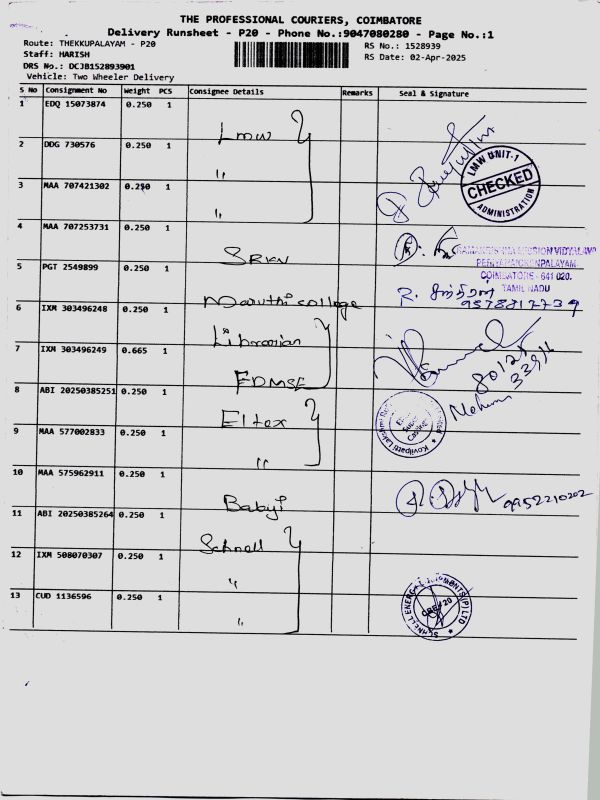 THE PROFESSIONAL COURIERS, COIMBATORE
Delivery Runsheet - P20 - Phone No.:9047080280 - Page No.:1
Route: THEKKUPALAYAM - P20
RS No.: 1528939
Staff: HARISH
RS Date: 02-Apr-2025
DRS No.: DCJB152893901
Vehicle: Two Wheeler Delivery
S No Consignment No Weight PCS Consignee Details Remarks Seal & Signature
1 EDQ 15073874 0.250 1 Lmw
2 DDG 730576 0.250 1 "
LMW UNIT-1
CHECKED
ADMINISTRATION
3 MAA 707421302 0.250 1 "
4 MAA 707253731 0.250 1 SRKV
RAMAKRISHNA MISSION VIDYALAYA
PERIYANAICKENPALAYAM
COIMBATORE - 641 020.
TAMIL NADU
5 PGT 2549899 0.250 1 Maruthi college
R.
9578817739
6 IXM 303496248 0.250 1 Librarian
7 IXM 303496249 0.665 1
80125
33911
8 ABI 20250385251 0.250 1 Eltex
9 MAA 577002833 0.250 1 "
10 MAA 575962911 0.250 1
9952210202
11 ABI 20250385264 0.250 1 Schnell
12 IXM 508070307 0.250 1 "
13 CUD 1136596 0.250 1 "